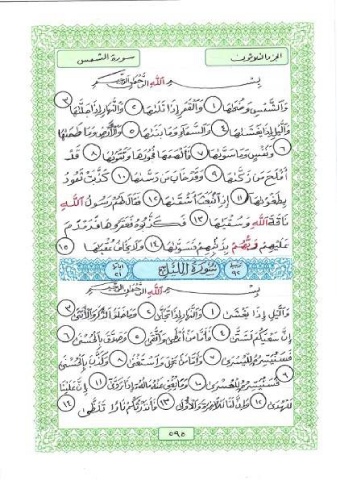 الجزء الثلاثون
سورة الشمس
بسم الله الرحمن الرحيم
والشمس وضحاها ١ والقمر إذا تلاها ٢ والنهار إذا جلاها ٣
والليل إذا يغشاها ٤ والسماء وما بناها ٥ والأرض وما طحاها
٦ ونفس وما سواها ٧ فألهمها فجورها وتقواها ٨ قد
أفلح من زكاها ٩ وقد خاب من دساها ١٠ كذبت ثمود
بطغواها ١١ إذ انبعث أشقاها ١٢ فقال لهم رسول الله
ناقة الله وسقياها ١٣ فكذبوه فعقروها فدمدم
عليهم ربهم بذنبهم فسواها ١٤ ولا يخاف عقباها ١٥
سورة الليل
٩٢
٢١
بسم الله الرحمن الرحيم
والليل إذا يغشى ١ والنهار إذا تجلى ٢ وما خلق الذكر والأنثى ٣
إن سعيكم لشتى ٤ فأما من أعطى واتقى ٥ وصدق بالحسنى ٦
فسنيسره لليسرى ٧ وأما من بخل واستغنى ٨ وكذب بالحسنى
٩ فسنيسره للعسرى ١٠ وما يغني عنه ماله إذا تردى ١١ إن علينا
للهدى ١٢ وإن لنا للآخرة والأولى ١٣ فأنذرتكم نارا تلظى ١٤
٥٩٥